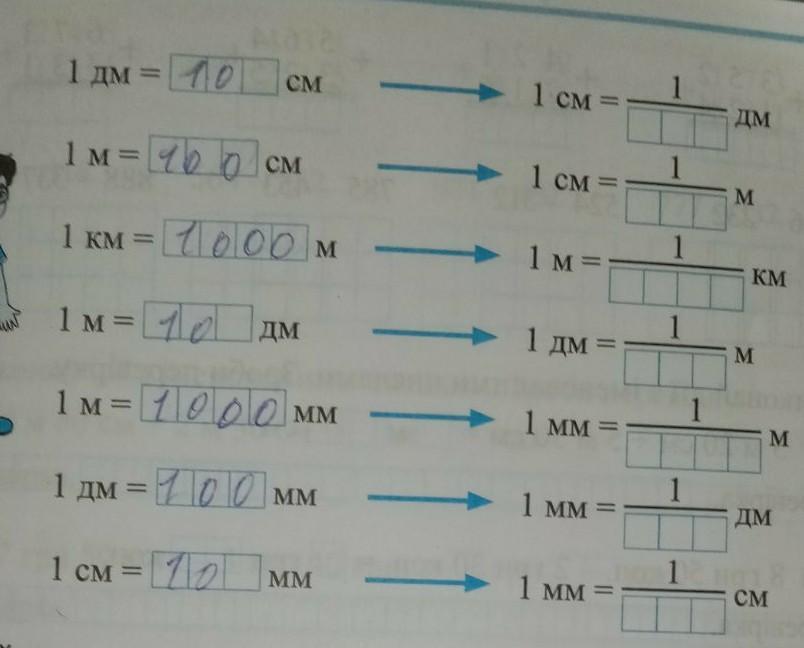 1 дм = 10 см 1 см = 1/ дм
1 м = 100 см 1 см = 1/ м
1 км = 1000 м 1 м = 1/ км
1 м = 10 дм 1 дм = 1/ м
1 м = 1000 мм 1 мм = 1/ м
1 дм = 100 мм 1 мм = 1/ дм
1 см = 10 мм 1 мм = 1/ см